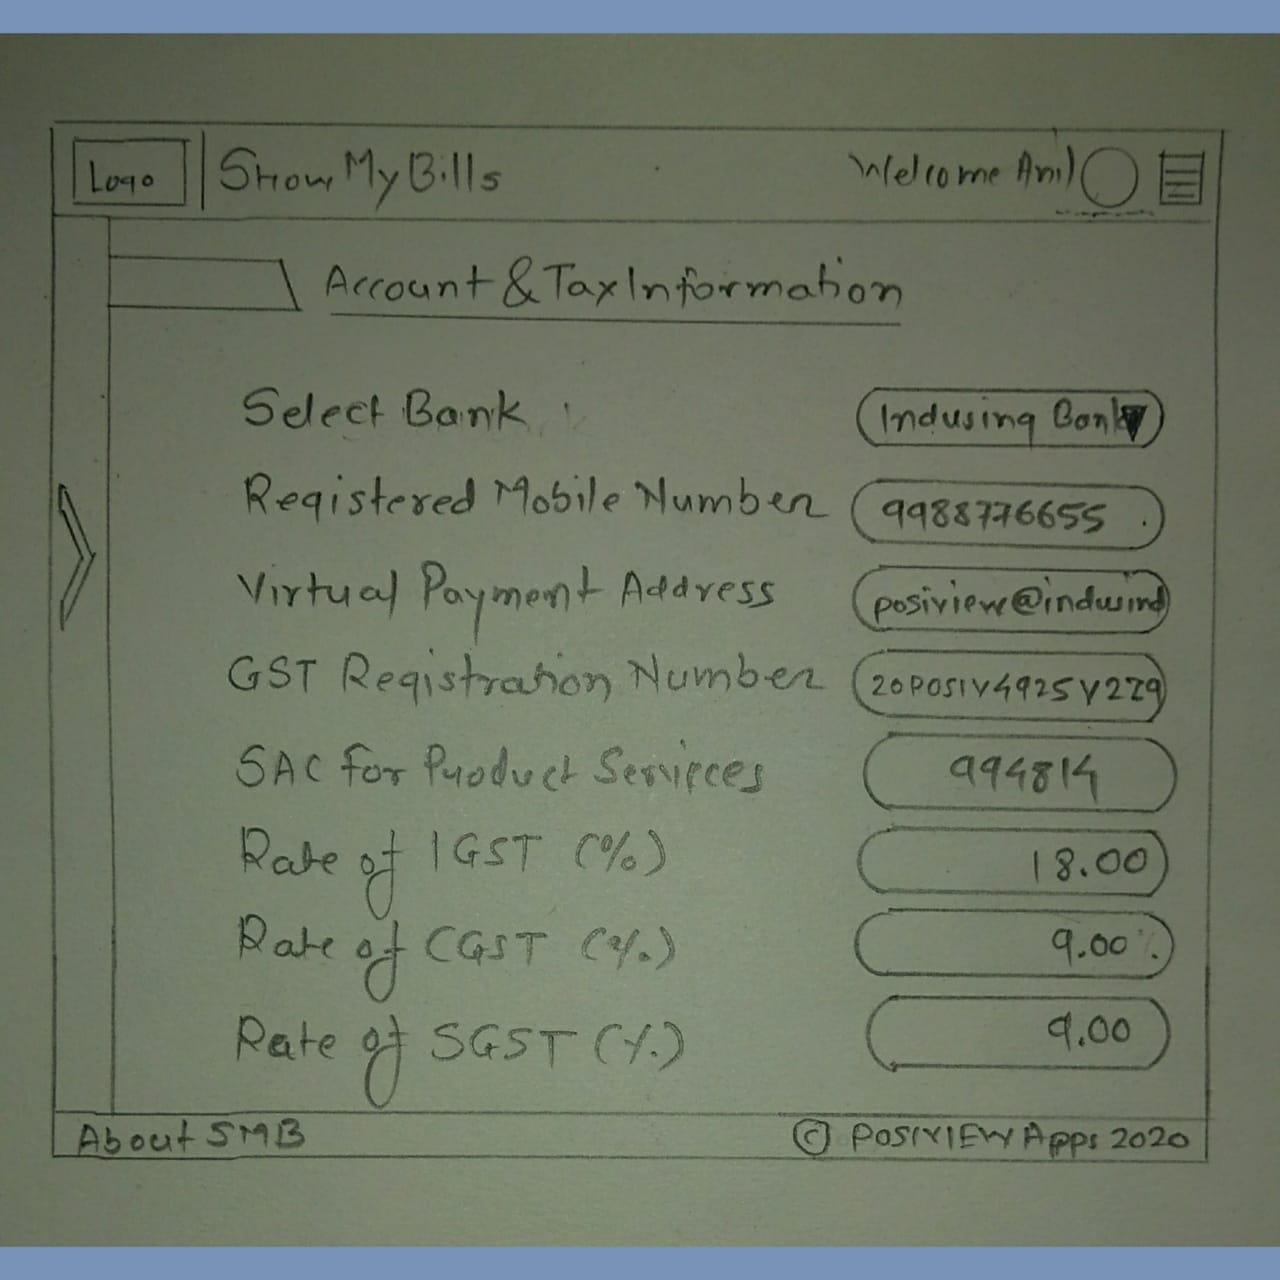 Logo Show My Bills Welcome Anil
Account & Tax Information
Select Bank : Indusing Bank
Registered Mobile Number 9988776655
Virtual Payment Address posiview@indusind
GST Registration Number 20POSIV4925V2Z9
SAC for Product Servicces 994814
Rate of IGST (%) 18.00
Rate of CGST (%) 9.00%
Rate of SGST (%) 9.00
About SMB © POSIVIEW Apps 2020